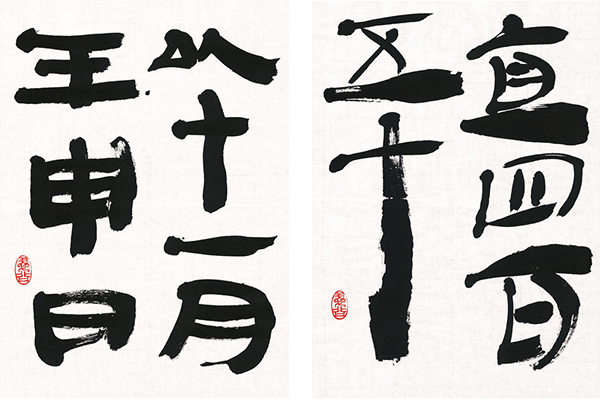 直四百
五十
以十一月
壬申日